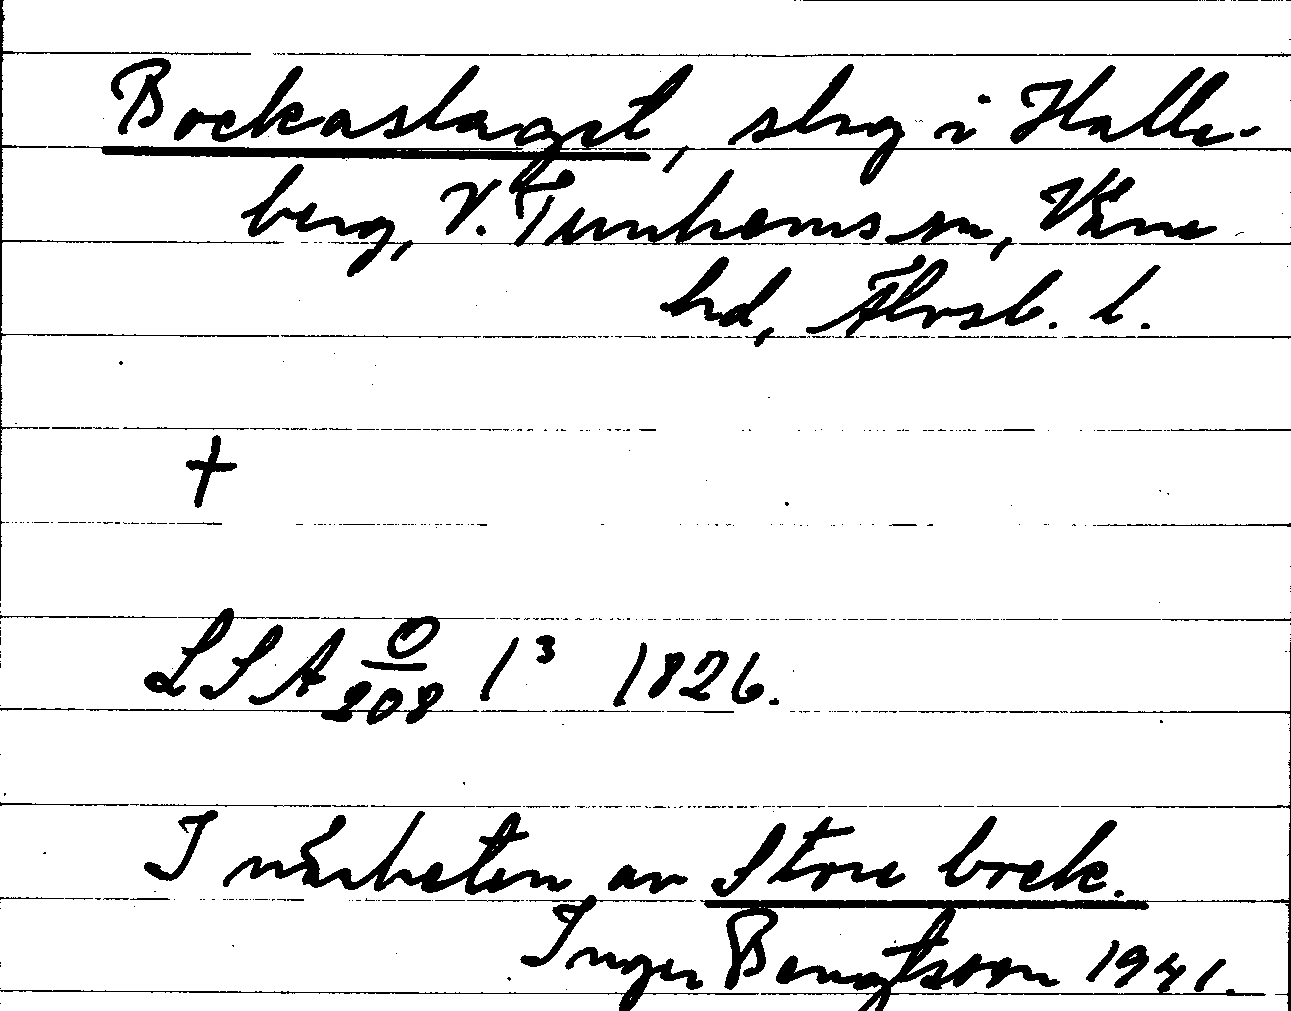 Bockaslaget, skog i Halle-
berg, V. Tunhems sn, Väne
hd, Älvsb. l.
+
LSA O/208 1³ 1826.
I närheten av Store bock.
Inger Bengtsson 1941.